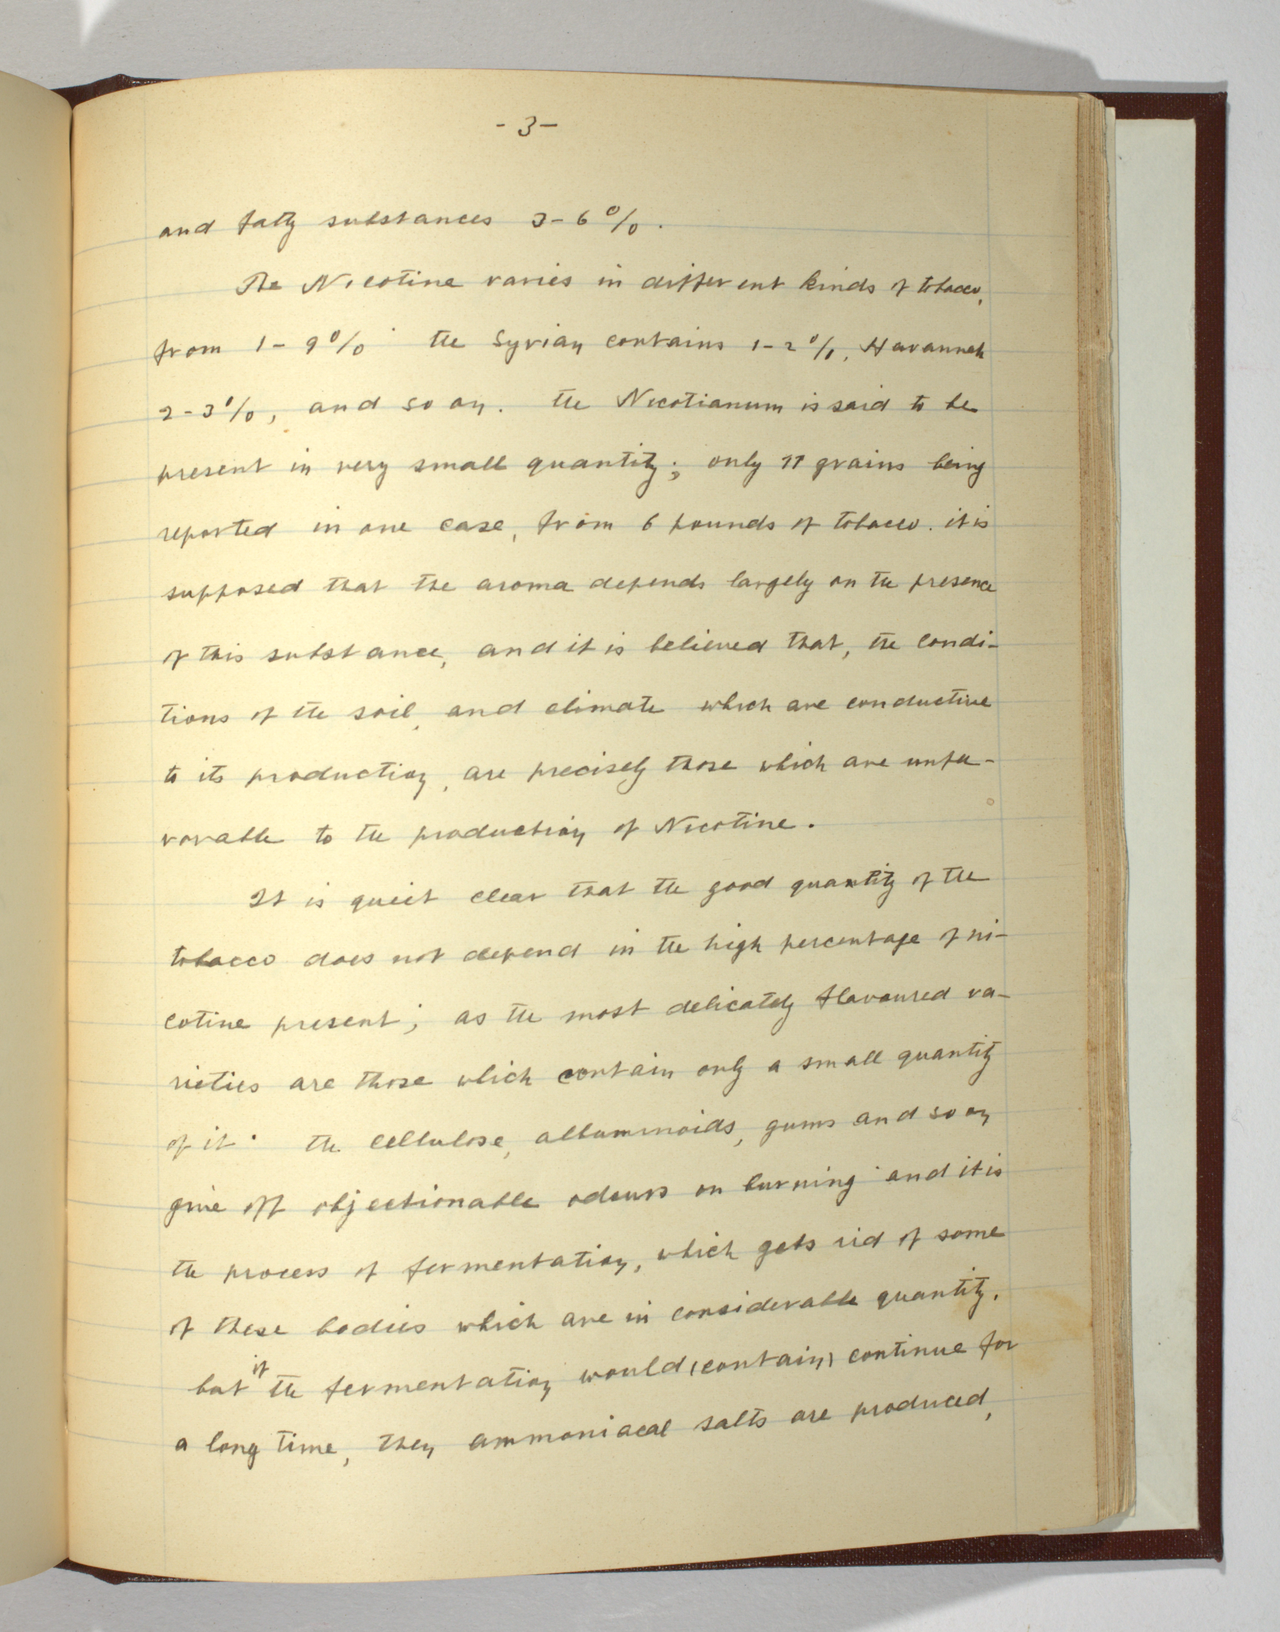 - 3 -
and fatty substances 3-6 %.
The Nicotine varies in different kinds of tobacco,
from 1-9 % the Syrian contains 1-2 %, Havannah
2-3 %, and so on. the Nicotianum is said to be
present in very small quantity; only 11 grains being
reported in one case, from 6 pounds of tobacco. it is
supposed that the aroma depends largely on the presence
of this substance, and it is believed that, the condi-
tions of the soil, and climate which are conductive
to its production, are precisely those which are unfa-
vorable to the production of Nicotine.
It is quiet clear that the good quantity of the
tobacco does not depend in the high percentage of ni-
cotine present; as the most delicately flavoured va-
rieties are those which contain only a small quantity
of it. the cellulose, albuminoids, gums and so on
give off objectionable odours on burning and it is
the process of fermentation, which gets rid of some
of these bodies which are in considerable quantity.
but if the fermentation would (contain) continue for
a long time, then ammoniacal salts are produced,